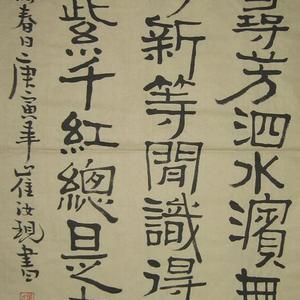 尋芳泗水濱無
新等閒識得
紫千紅總是春
春日庚寅年崔汝現書